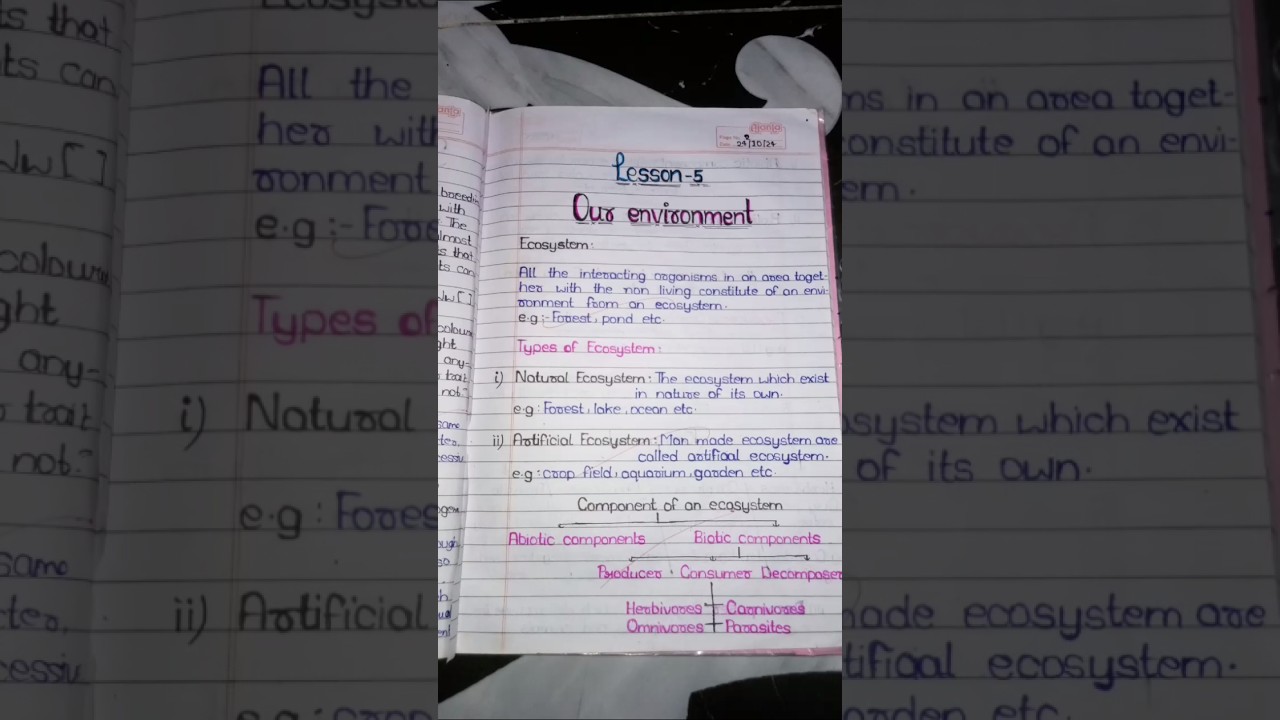 24/10/24
Lesson-5
Our environment
Ecosystem:
All the interacting organisms in an area toget-
her with the non living constitute of an envi-
ronment from an ecosystem.
e.g:- Forest, pond etc.
Types of Ecosystem:
i) Natural Ecosystem: The ecosystem which exist
in nature of its own.
e.g: Forest, lake, ocean etc.
ii) Artificial Ecosystem: Man made ecosystem are
called artifical ecosystem.
e.g: crop field, aquarium, garden etc.
Component of an ecosystem
Abiotic components Biotic components
Producer Consumer Decomposer
Herbivores Carnivores
Omnivores Parasites